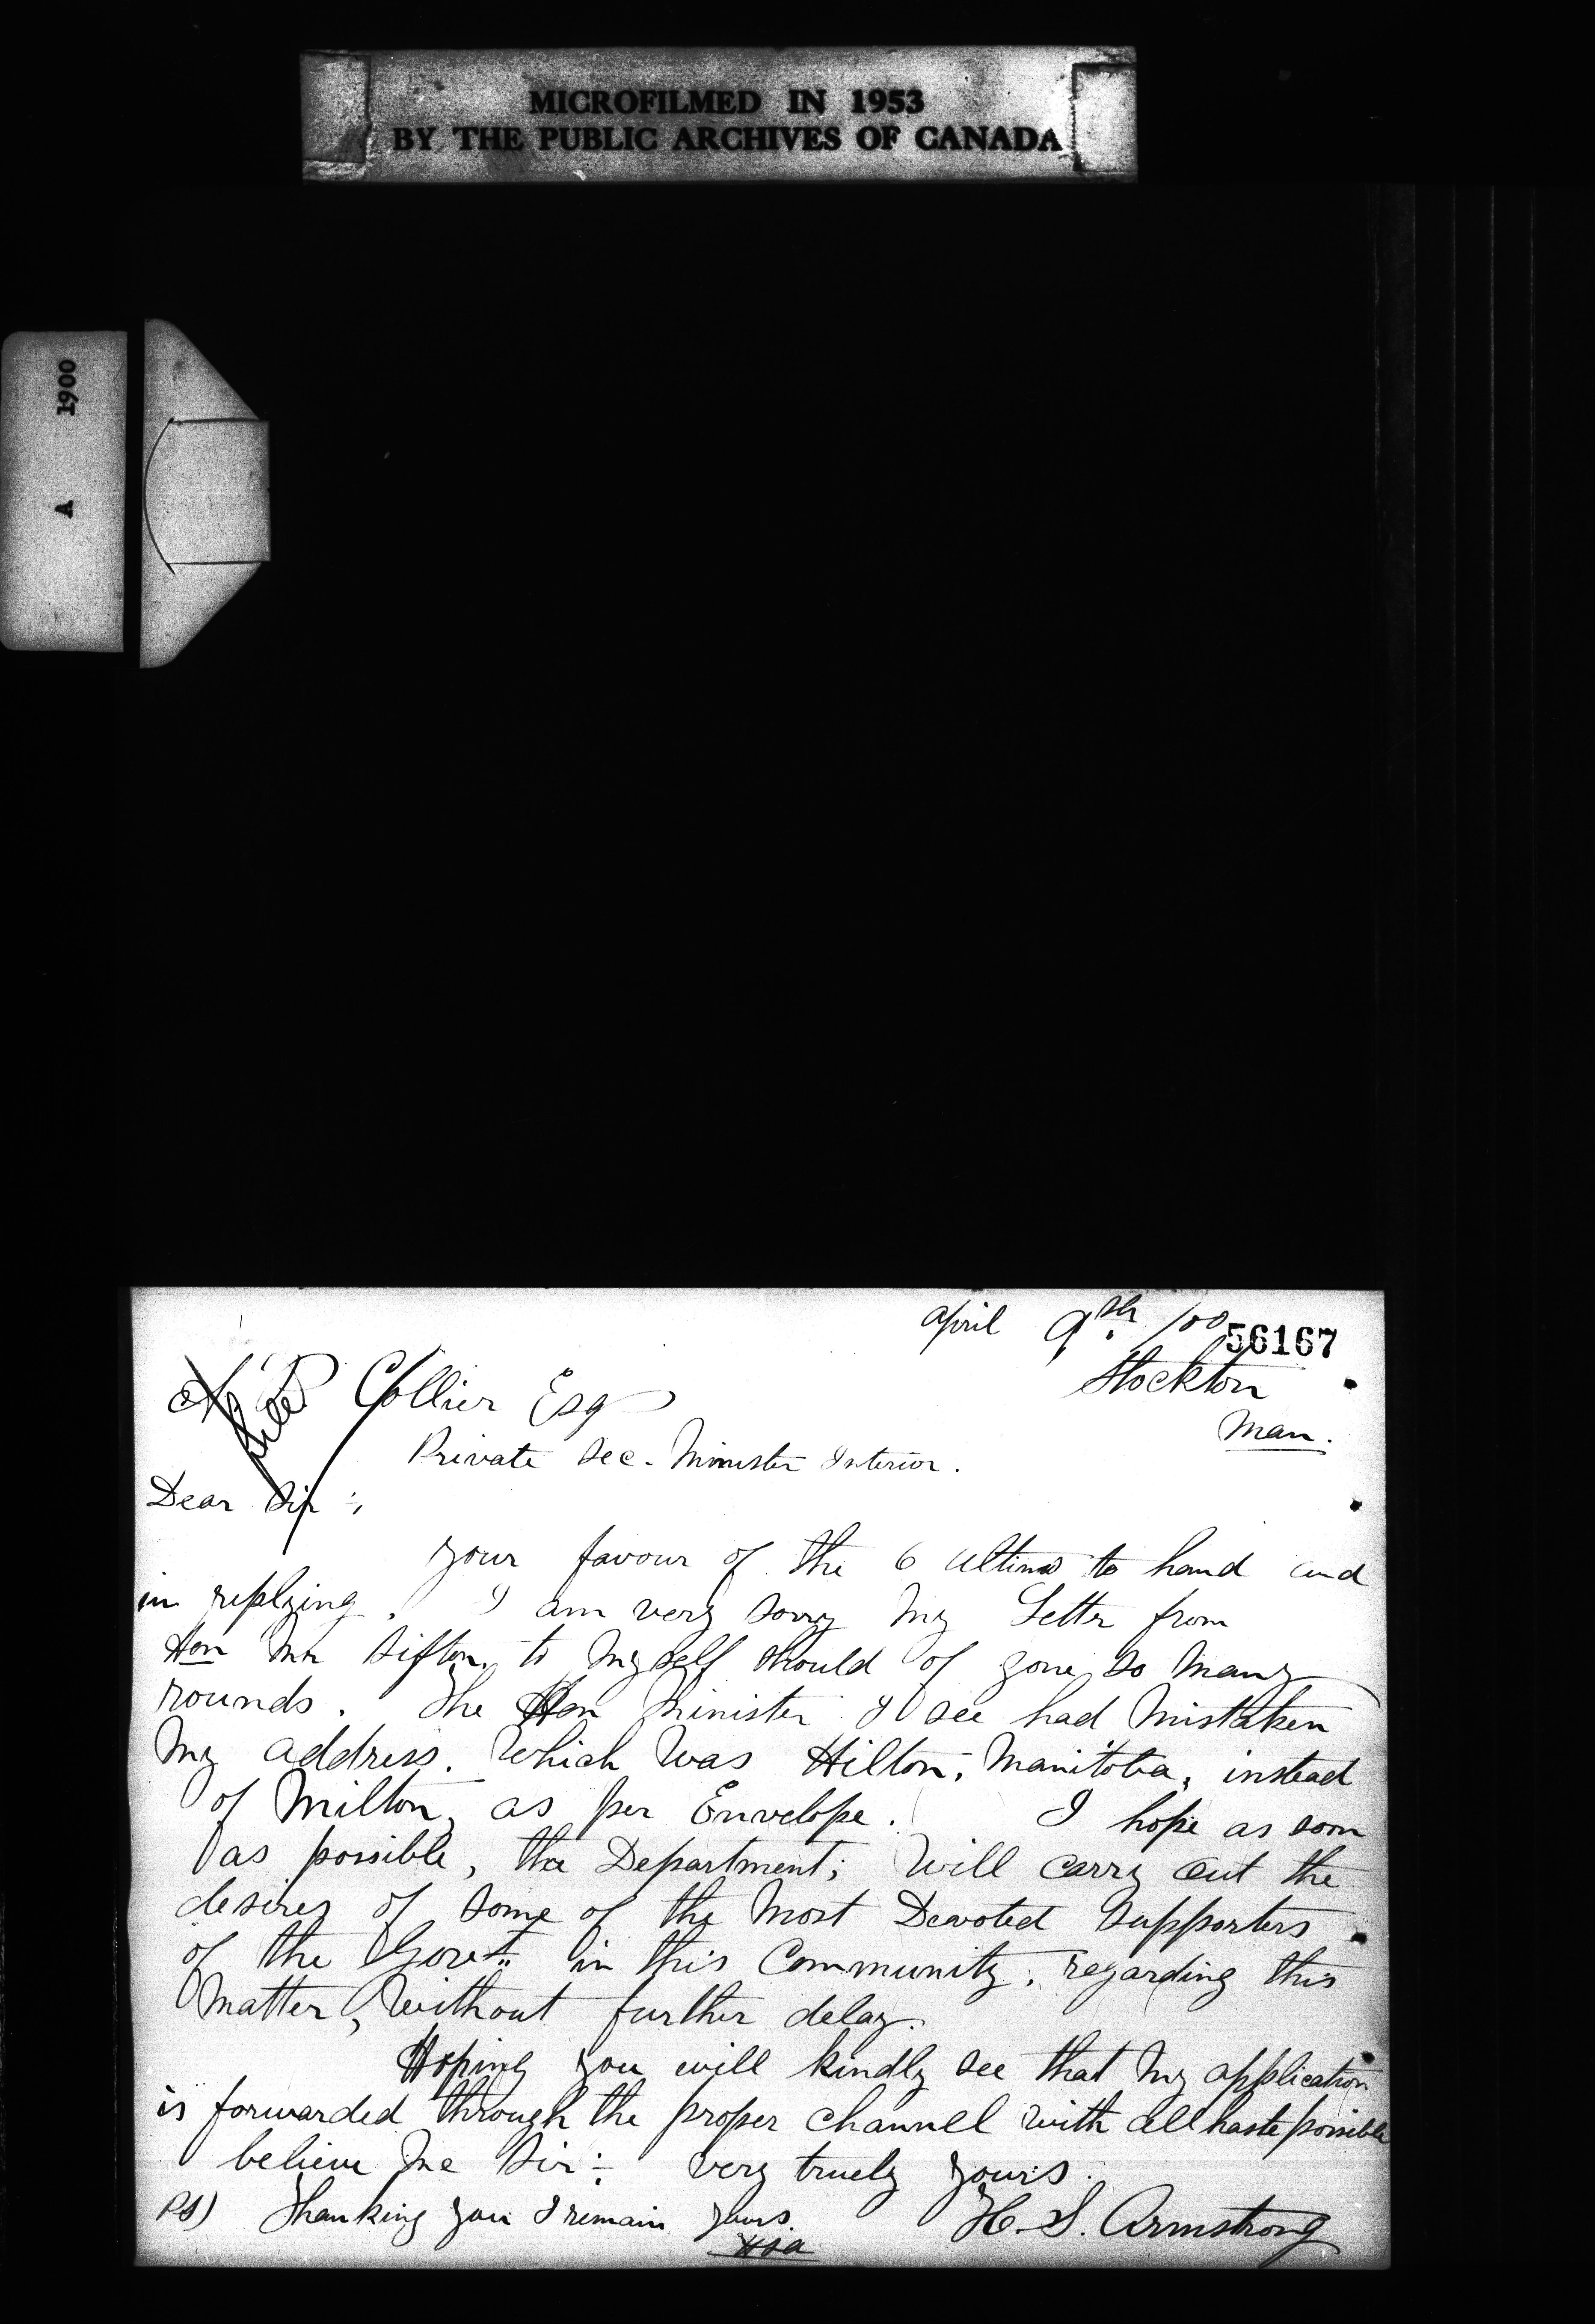 MICROFILMED IN 1953
BY THE PUBLIC ARCHIVES OF CANADA
1900
A
April 9th /00
56167
Stockton
Man.
Collier Esq
Private Sec. Minister Interior.
Dear Sir :,
your favour of the 6 ultimo to hand and
in replying. I am very sorry my Letter from
Hon Mr Sifton, to myself should of gone so many
rounds. The Hon Minister I see had mistaken
my address. Which was Hilton, Manitoba, instead
of Milton, as per Envelope. I hope as soon
as possible, the Department; will carry out the
desires of some of the most Devoted Supporters
of the Govet. in this Community, regarding this
matter, without further delay.
Hoping you will kindly see that my application
is forwarded through the proper channel with all haste possible
believe me Sir :- very truely yours.
PS) Thanking you I remain yours.
H. S. Armstrong
HSA